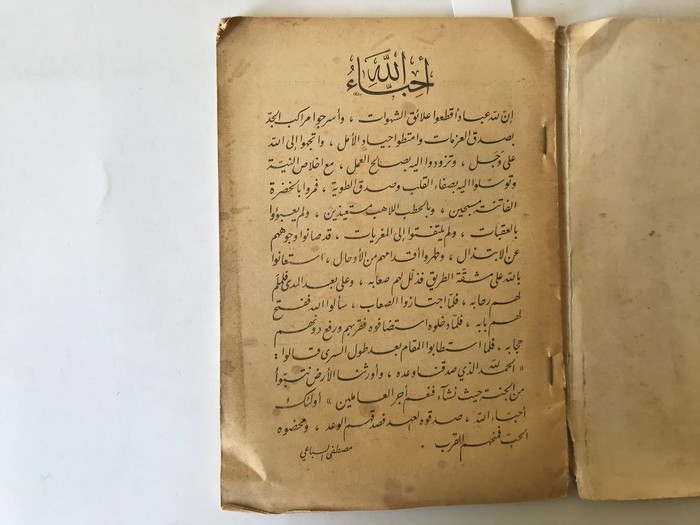 أحباء الله
إن لله عبادا قطعوا علائق الشهوات ، وأسرجوا مراكب الجد
بصدق العزمات وامتطوا جياد الأمل ، واتجهوا إلى الله
على وجل ، وتزودوا اليه بصالح العمل ، مع اخلاص النية
وتوسلوا اليه بصفاء القلب وصدق الطوية ، فمروا بالخضرة
الفاتنة مسبحين ، وبالحطب اللاهب مستعيذين ، ولم يعبؤوا
بالعقبات ، ولم يلتفتوا إلى المغريات ، قد صانوا وجوههم
عن الابتذال ، وطهروا أقدامهم من الأوحال ، استعانوا
بالله على مشقة الطريق فذلل لهم صعابه ، وعلى بعد المدى فلملم
لهم رحابه ، فلما اجتازوا الصعاب ، سألوا الله ففتح
لهم بابه ، فلما دخلوه استضافوه فقربهم ورفع دونهم
حجابه ، فلما استطابوا المقام بعد طول السرى قالوا :
« الحمد لله الذي صدقنا وعده ، وأورثنا الأرض نتبوأ
من الجنة حيث نشآء فنعم أجر العاملين » أولئك
أحباء الله ، صدقوه العهد فصدقهم الوعد ، ومحضوه
الحب فمنحهم القرب .
مصطفى السباعي